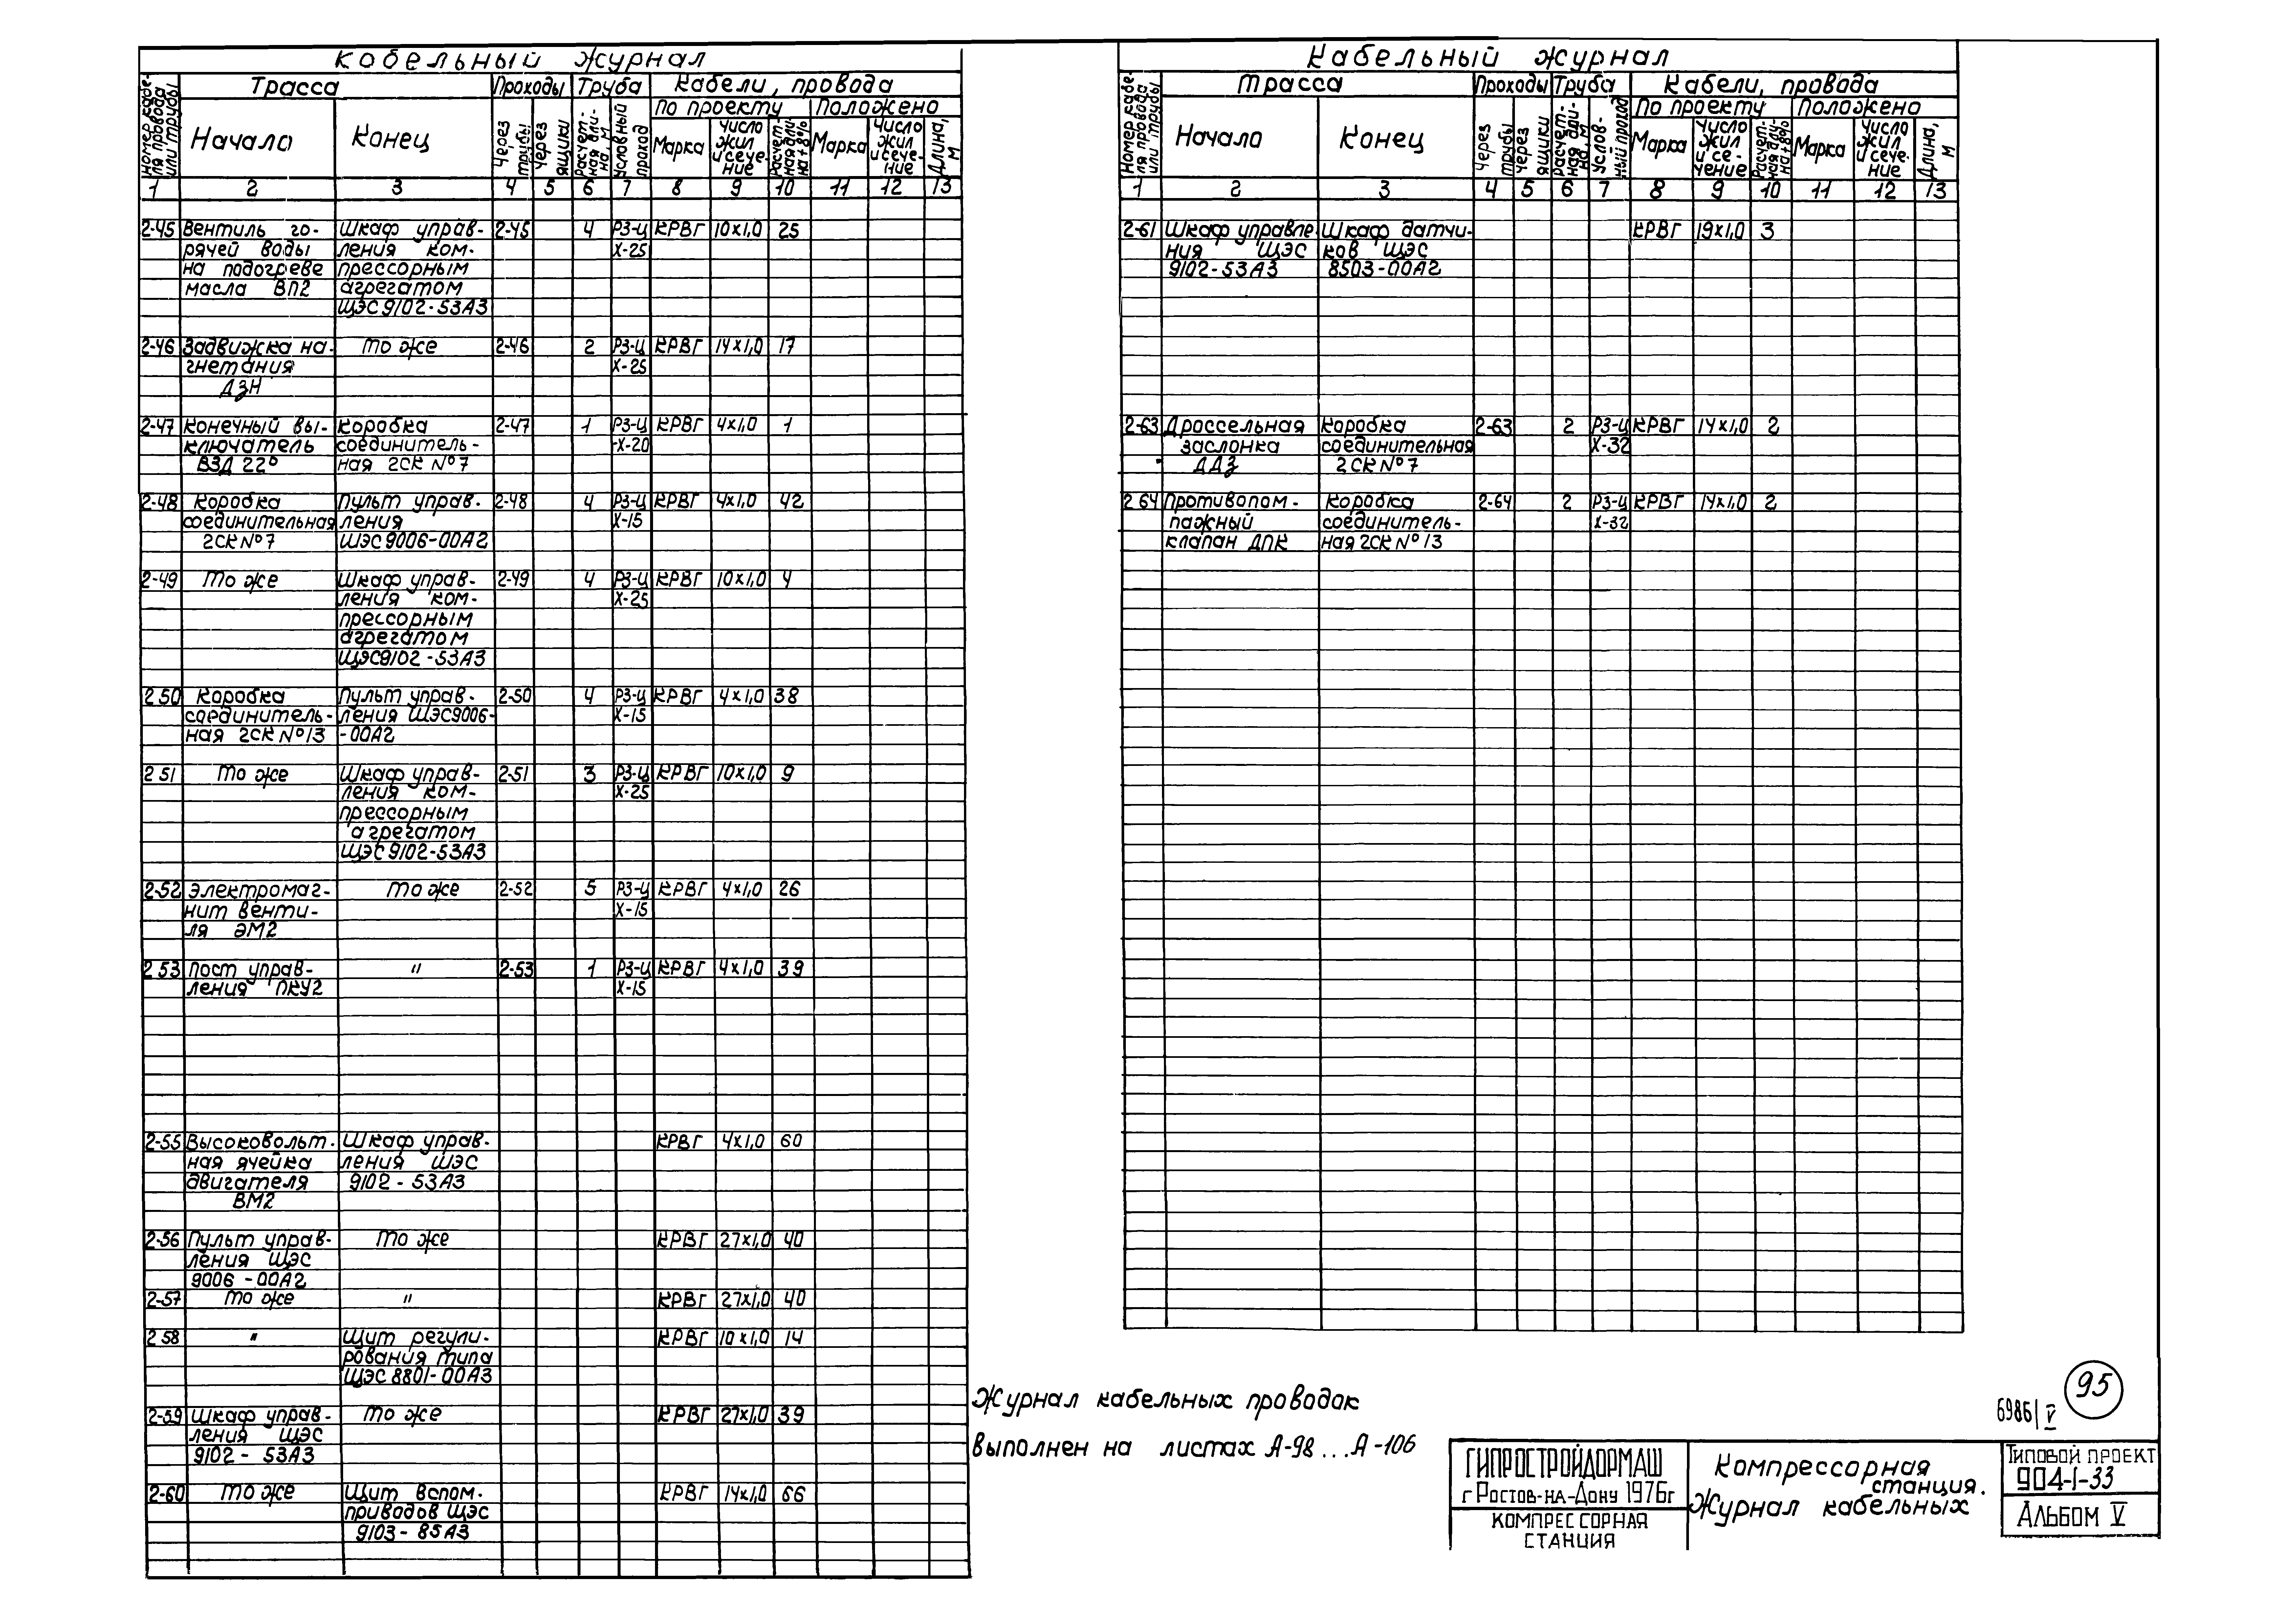 Кабельный журнал
Номер кабеля провода или трубы
Трасса
Проходы
Труба
Кабели, провода
По проекту
Положено
Начало
Конец
Через трубы
Через ящики
Расчетная длина, м
Условный проход
Марка
Число жил и сечение
Расчетная длина +8%
Марка
Число жил и сечение
Длина, м
1 2 3 4 5 6 7 8 9 10 11 12 13
2-45 Вентиль го- Шкаф управ- 2-45 4 РЗ-Ц КРВГ 10х1,0 25
рячей воды ления ком- Х-25
на подогреве прессорным
масла ВП2 агрегатом
ЩЭС9102-53А3
2-46 Задвижка на- То же 2-46 2 РЗ-Ц КРВГ 14х1,0 17
гнетания Х-25
ДЗН
2-47 Конечный вы- Коробка 2-47 1 РЗ-Ц КРВГ 4х1,0 1
ключатель соединитель- -Х-20
ВЗД 22° ная 2СК №7
2-48 Коробка Пульт управ- 2-48 4 РЗ-Ц КРВГ 4х1,0 42
соединительная ления Х-15
2СК №7 ЩЭС9006-00А2
2-49 То же Шкаф управ- 2-49 4 РЗ-Ц КРВГ 10х1,0 4
ления ком- Х-25
прессорным
агрегатом
ЩЭС9102-53А3
2 50 Коробка Пульт управ- 2-50 4 РЗ-Ц КРВГ 4х1,0 38
соединитель- ления ЩЭС9006- Х-15
ная 2СК №13 -00А2
2 51 То же Шкаф управ- 2-51 3 РЗ-Ц КРВГ 10х1,0 9
ления ком- Х-25
прессорным
агрегатом
ЩЭС9102-53А3
2-52 Электромаг- То же 2-52 5 РЗ-Ц КРВГ 4х1,0 26
нит венти- Х-15
ля ЭМ2
2 53 Пост управ- " 2-53 1 РЗ-Ц КРВГ 4х1,0 39
ления ПКУ2 Х-15
2-55 Высоковольт- Шкаф управ- КРВГ 4х1,0 60
ная ячейка ления ЩЭС
двигателя 9102-53А3
ВМ2
2-56 Пульт управ- То же КРВГ 27х1,0 40
ления ЩЭС
9006-00А2
2-57 То же " КРВГ 27х1,0 40
2 58 " Щит регули- КРВГ 10х1,0 14
рования типа
ЩЭС8801-00А3
2-59 Шкаф управ- То же КРВГ 27х1,0 39
ления ЩЭС
9102-53А3
2-60 То же Щит вспом- КРВГ 14х1,0 66
приводов ЩЭС
9103-85А3
Кабельный журнал
Номер кабеля провода или трубы
Трасса
Проходы
Труба
Кабели, провода
По проекту
Положено
Начало
Конец
Через трубы
Через ящики
Расчетная длина, м
Условный проход
Марка
Число жил и сечение
Расчетная длина +8%
Марка
Число жил и сечение
Длина, м
1 2 3 4 5 6 7 8 9 10 11 12 13
2-61 Шкаф управле Шкаф датчи- КРВГ 19х1,0 3
ния ЩЭС ков ЩЭС
9102-53А3 8503-00А2
2-63 Дроссельная Коробка 2-63 2 РЗ-Ц КРВГ 14х1,0 2
заслонка соединительная Х-32
ДДЗ 2СК №7
2 64 Противопом- Коробка 2-64 2 РЗ-Ц КРВГ 14х1,0 2
пажный соединитель- Х-32
клапан ДПК ная 2СК №13
Журнал кабельных проводок
выполнен на листах А-98...А-106
95
6986/V
ГИПРОСТРОЙДОРМАШ
г Ростов-на-Дону 1976г
КОМПРЕССОРНАЯ
СТАНЦИЯ
Компрессорная
станция.
Журнал кабельных
Типовой проект
904-1-33
Альбом V